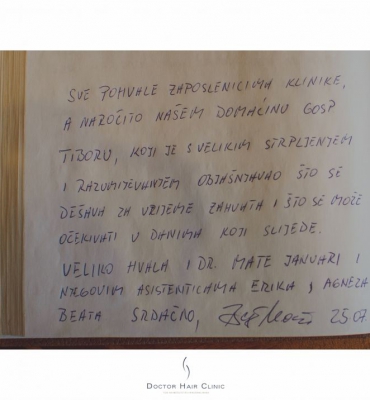 SVE POHVALE ZAPOSLENICIMA KLINIKE,
A NAROČITO NAŠEM DOMAĆINU GOSP
TIBORU, KOJI JE S VELIKIM STRPLJENJEM
I RAZUMIJEVANJEM OBJAŠNJAVAO ŠTO SE
DEŠAVA ZA VRIJEME ZAHVATA I ŠTO SE MOŽE
OČEKIVATI U DANIMA KOJI SLIJEDE.
VELIKO HVALA I DR. MATE JANUARI I
NJEGOVIM ASISTENTICAMA ERIKA, AGNEZA
BEATA SRDAČNO, 25.07
DOCTOR HAIR CLINIC